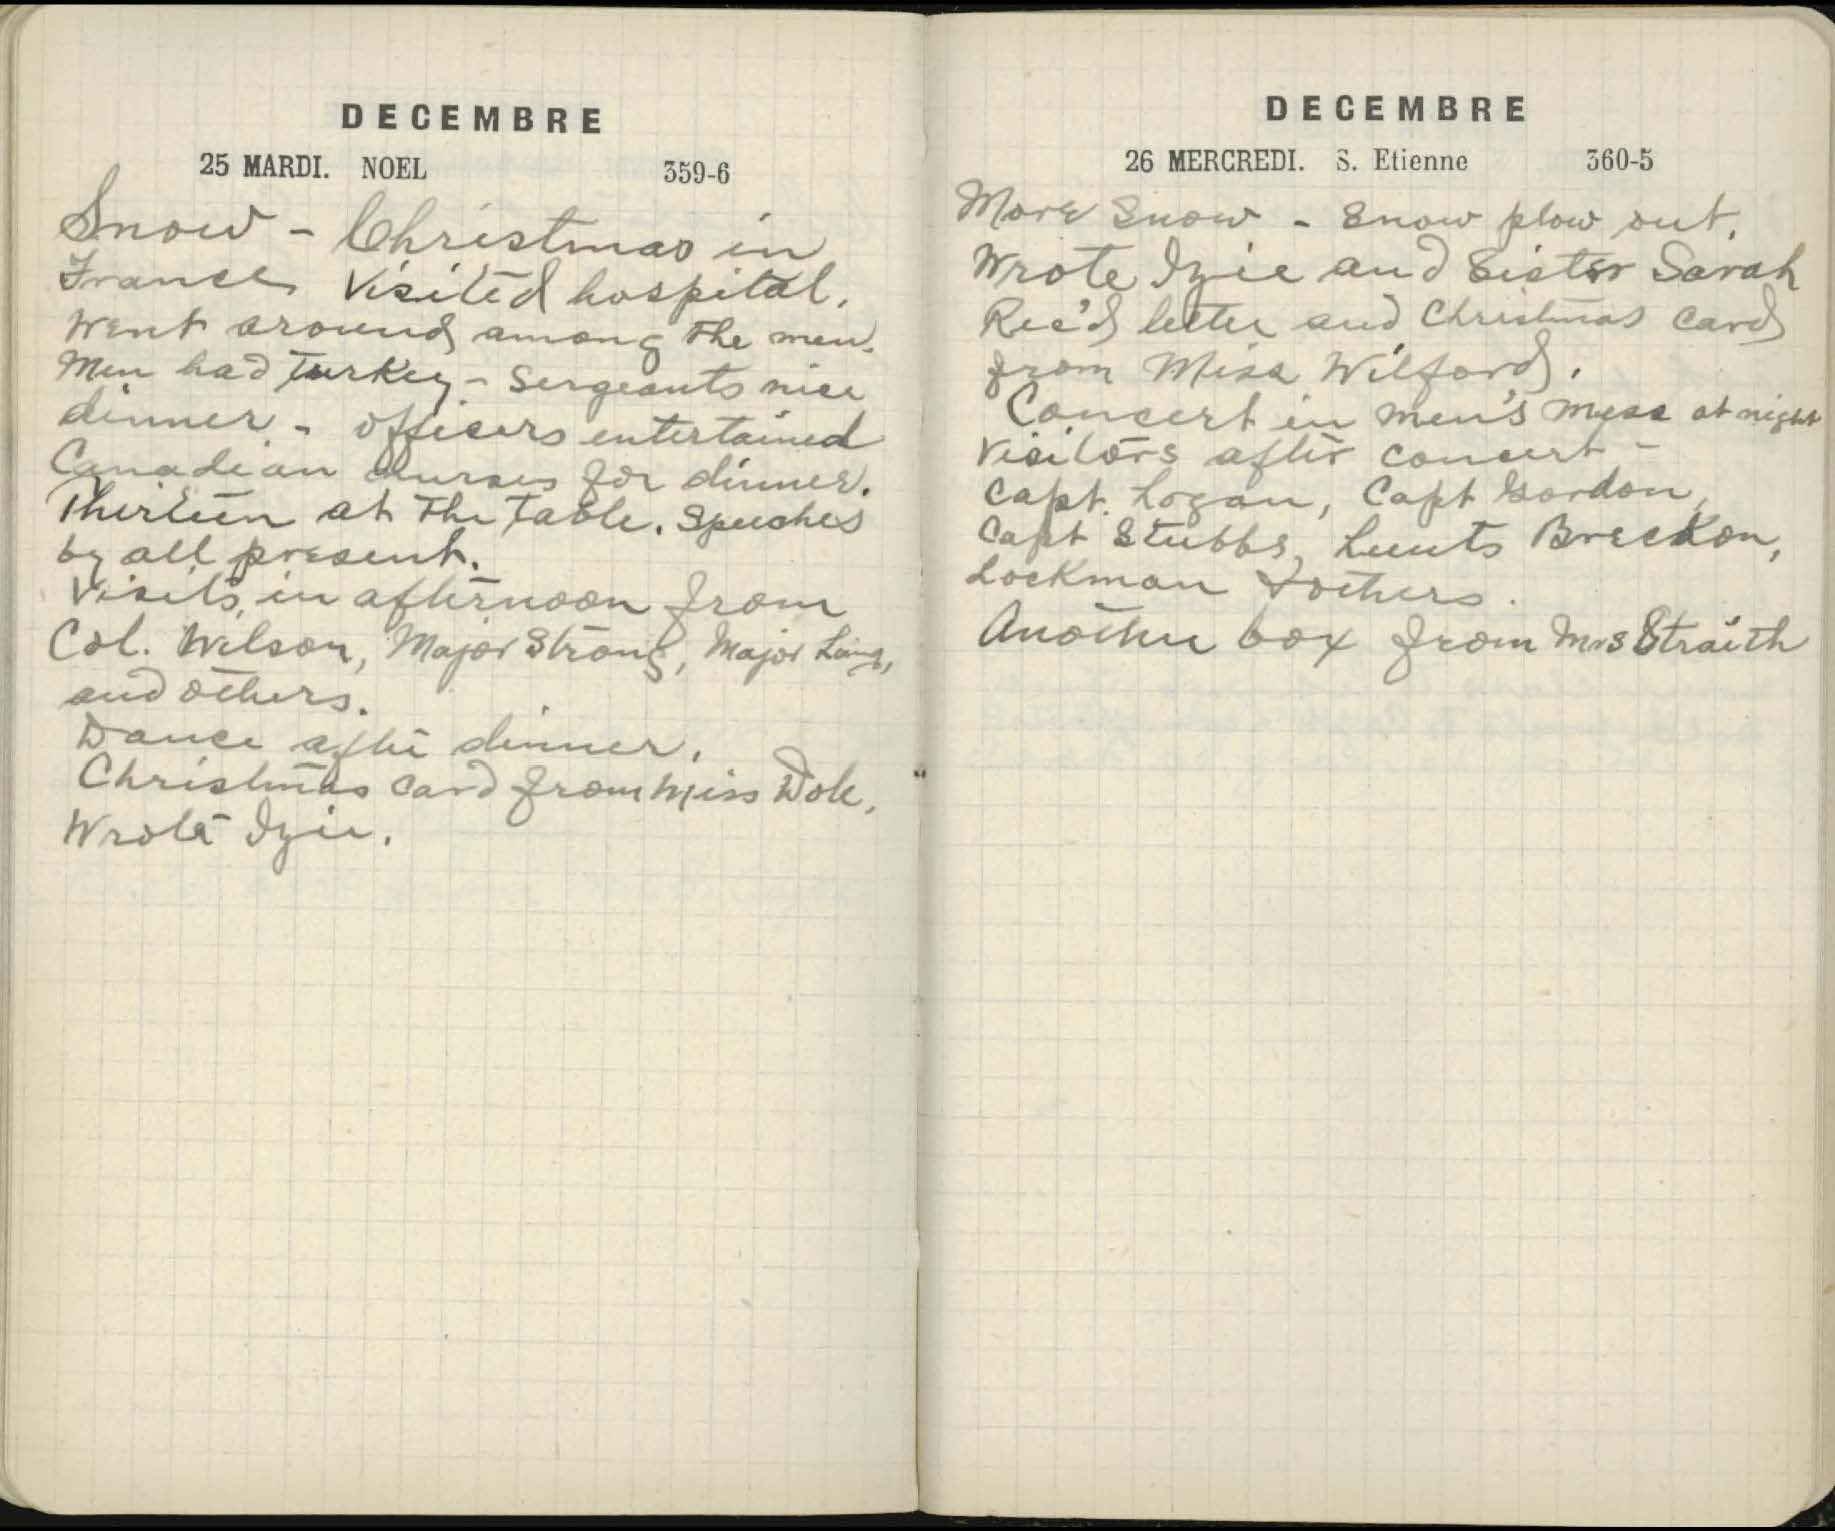 DECEMBRE
25 MARDI. NOEL 359-6
Snow - Christmas in
France Visited hospital.
Went around among the men.
Men had turkey - Sergeants nice
dinner - officers entertained
Canadian nurses for dinner.
Thirteen at the table. Speeches
by all present.
Visits in afternoon from
Col. Wilson, Major Strong, Major Laing,
and others.
Dance after dinner.
Christmas card from Miss Dole.
Wrote Izie.
DECEMBRE
26 MERCREDI. S. Etienne 360-5
More Snow - Snow plow out.
Wrote Izie and Sister Sarah
Rec'd letter and Christmas card
from Miss Wilford.
Concert in men's mess at night
Visitors after concert -
Capt. Logan, Capt Gordon,
Capt Stubbs, Lieuts Breckon,
Lockman & others.
Another box from Mrs Straith